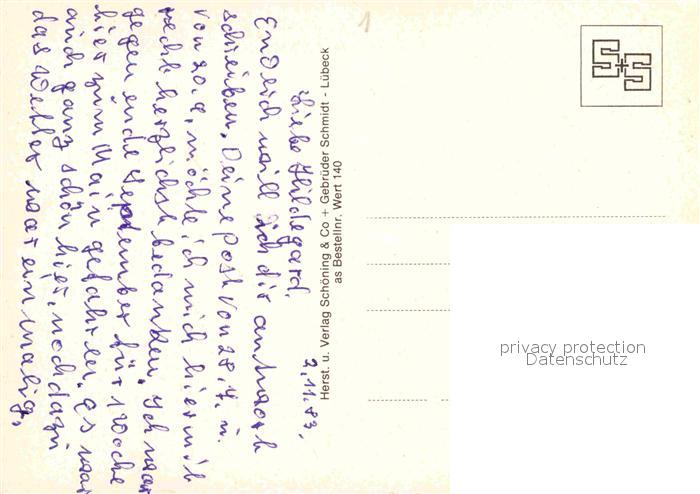 2.11.83,
Liebe Hildegard.
Endlich will ich dir antwort
schreiben. Deine Post von 28.7. u.
von 20.9. möchte ich mich hiermit
recht herzlichst bedanken. Ich war
gegen ende September für 1 Woche
hier zum Main gefahren. Es war
auch ganz schön hier, noch dazu
das Wetter war einmalig.
Herst. u. Verlag Schöning & Co + Gebrüder Schmidt - Lübeck
as Bestellnr. Wert 140
S+S
privacy protection
Datenschutz
1